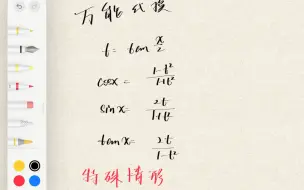 万能代换
t = tan x/2
cosx = 1-t²/1+t²
sinx = 2t/1+t²
tanx = 2t/1-t²
特殊情形